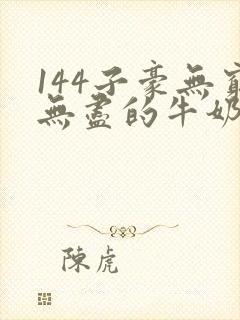 144子豪無窮
無盡的牛奶
陳虎